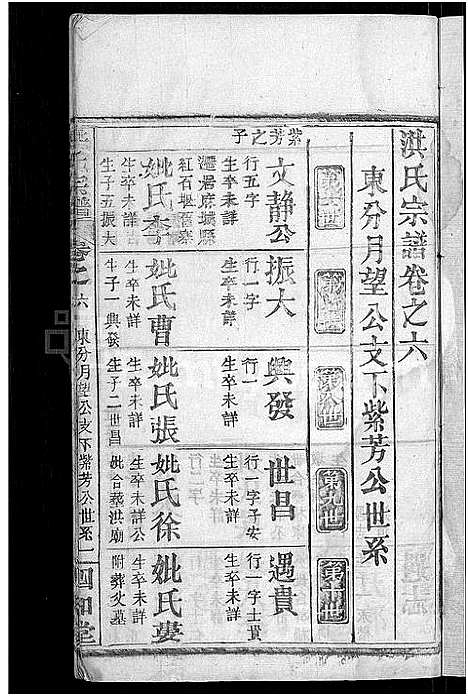 洪氏宗譜卷之六
東分月望公支下紫芳公世系
第九世
第十世
紫芳之子
文静公
行五字
生卒未詳
遷居麻城縣
紅石堰伍寨
妣氏李
生卒未詳
生子五振大
振大
行一字
生卒未詳
妣氏曹
生卒未詳
生子一興發
興發
行一
生卒未詳
妣氏張
生卒未詳
生子二世昌
世昌
行一字子安
生卒未詳公
妣氏徐
生卒未詳公
妣合葬洪廟
遇貴
行一字士貫
生卒未詳
妣氏婁
生卒未詳
附葬父墓
卷之六
東分月望公支下紫芳公世系